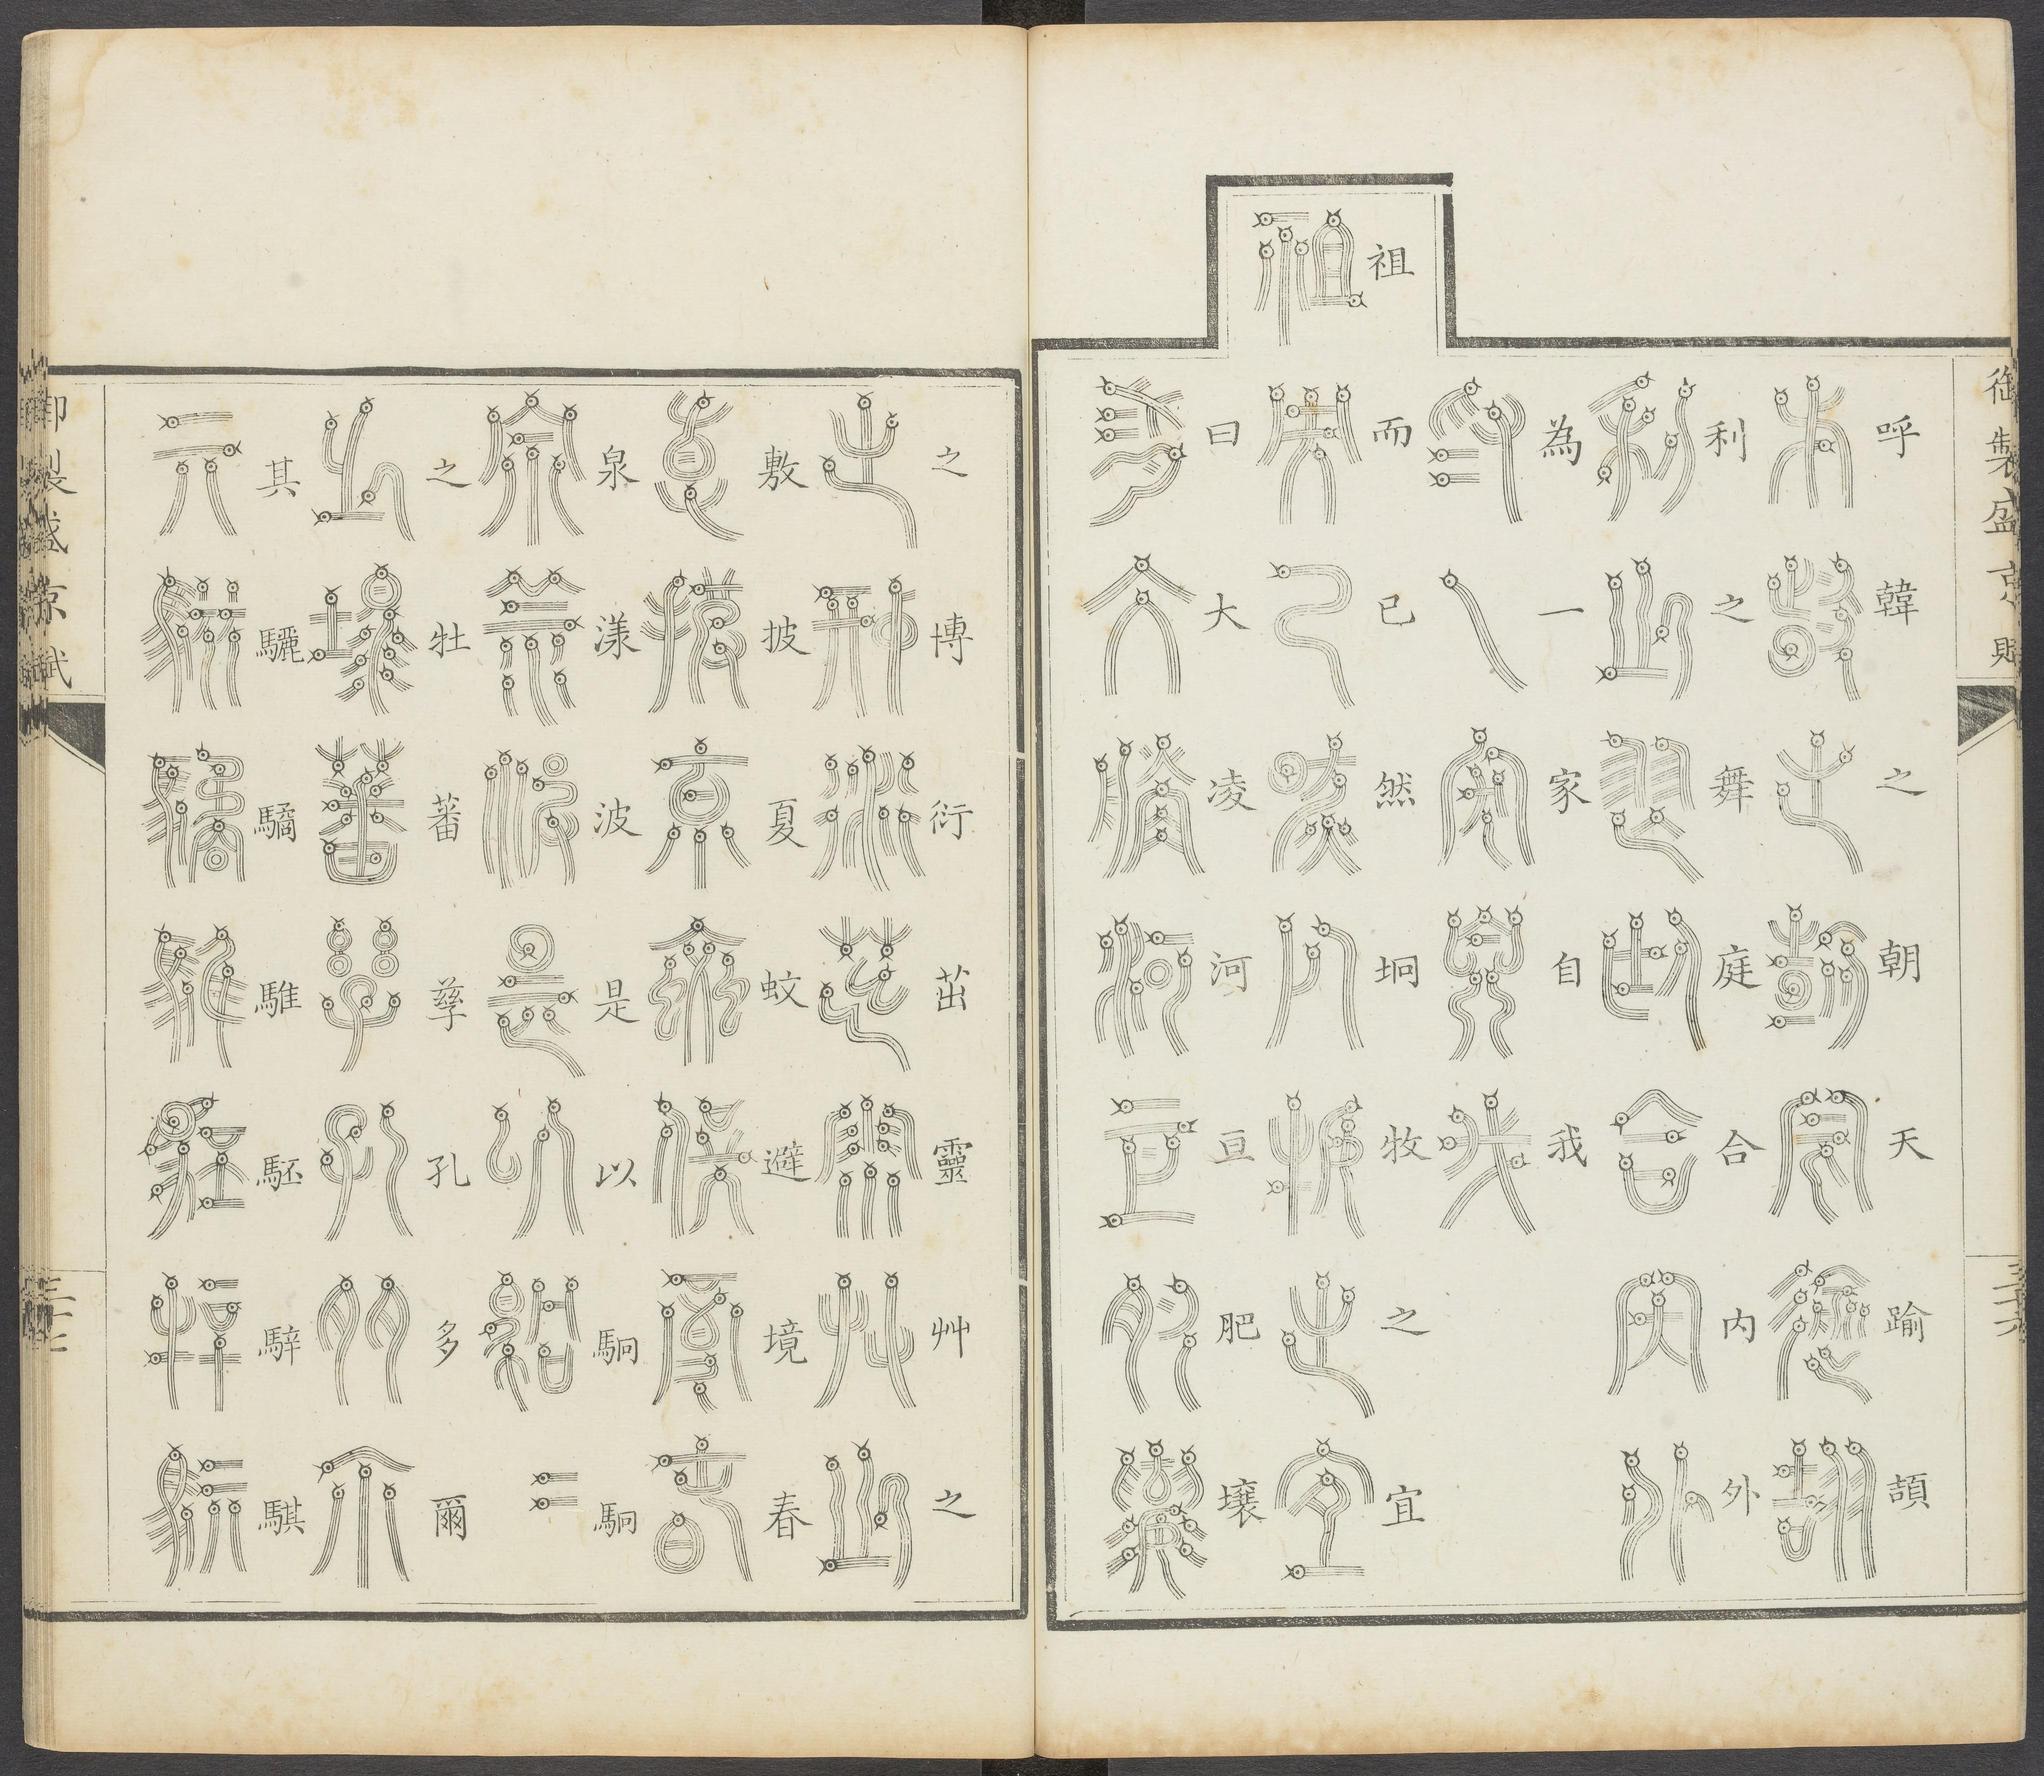 御製盛京賦
呼韓之朝天踰頡
利之舞庭合内外
為一家自我
祖而已然坰牧之宜
曰大凌河亘肥壤
之博衍茁靈艸之
敷披夏蚊避境春
泉漾波是以駉駉
之牡蕃孳孔多爾
其驪驈騅駓騂騏
御製盛京賦